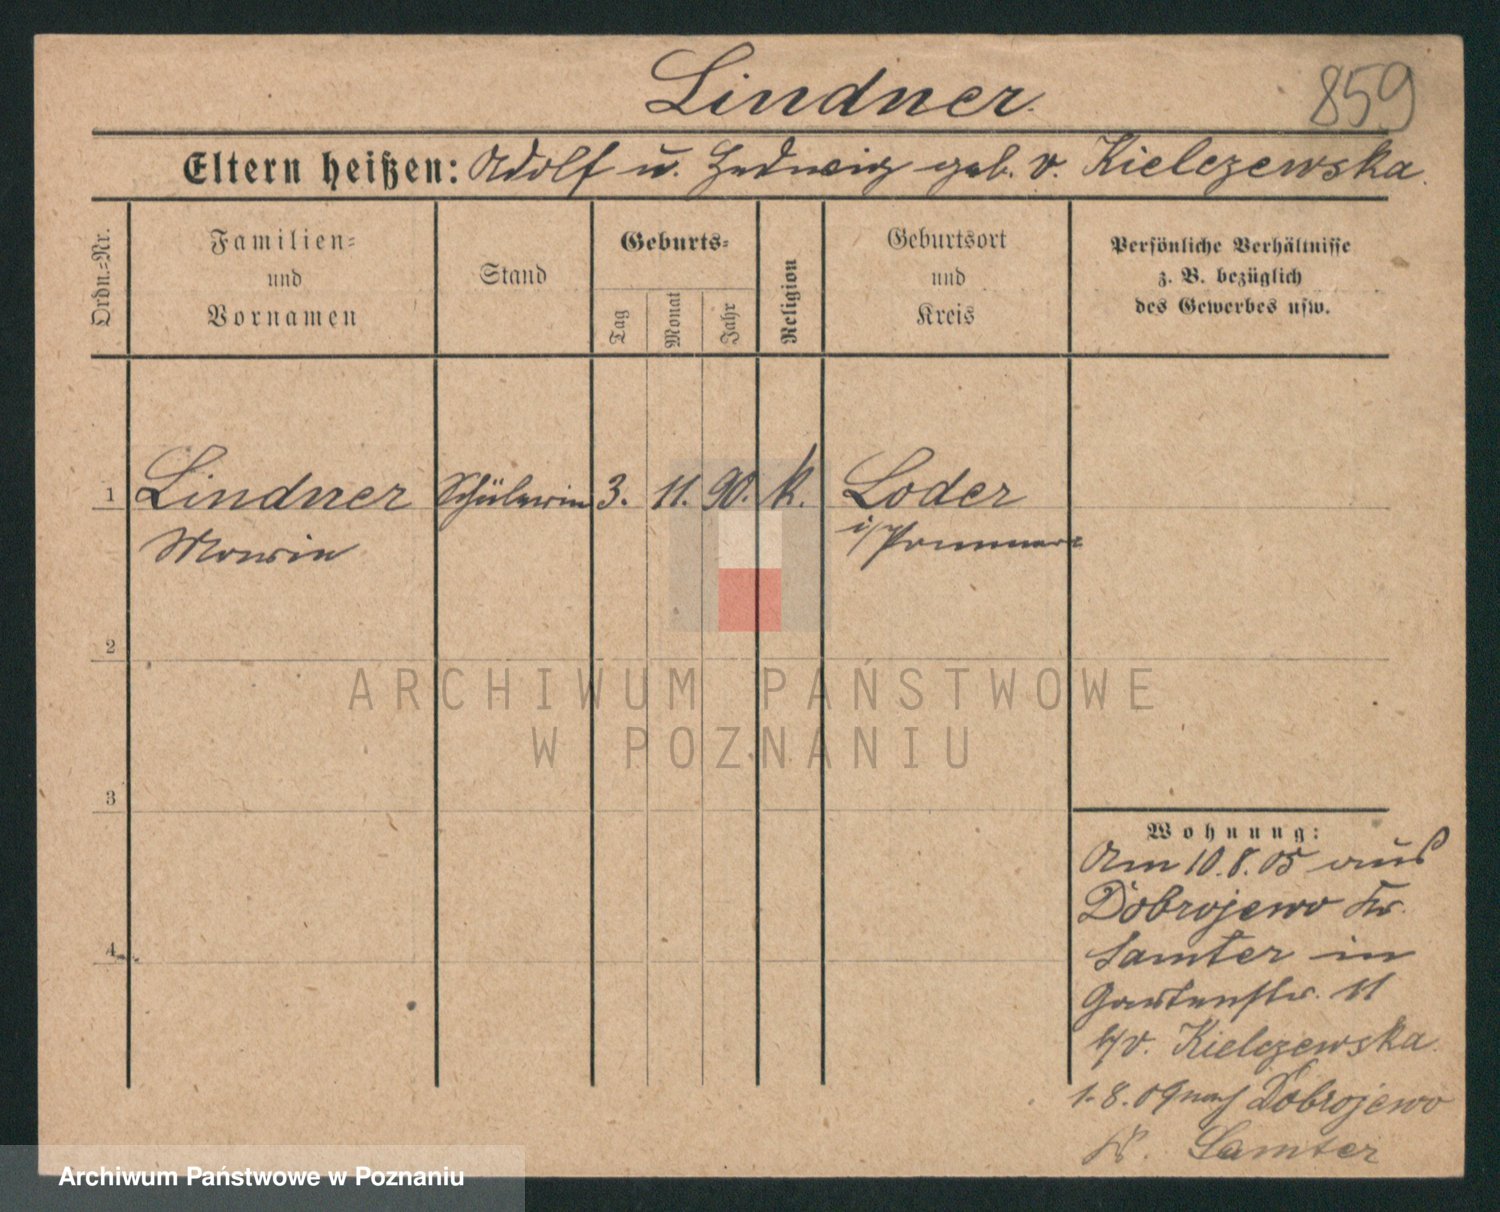 Lindner.
859
Eltern heißen: Adolf u. Hedwig geb. v. Kielczewska.
Ordn.-Nr.
Familien-
und
Vornamen
Stand
Geburts-
Tag
Monat
Jahr
Religion
Geburtsort
und
Kreis
Persönliche Verhältnisse
z. B. bezüglich
des Gewerbes usw.
1 Lindner Schülerin 3. 11. 90. k. Loder
Maria i/Pommern
2
3
4
Wohnung:
Am 10.8.05 aus
Dobrojewo Kr.
Samter in
Gartenstr. 11
b/v. Kielczewska.
1.8.09 nach Dobrojewo
Kr. Samter
ARCHIWUM PAŃSTWOWE
W POZNANIU
Archiwum Państwowe w Poznaniu